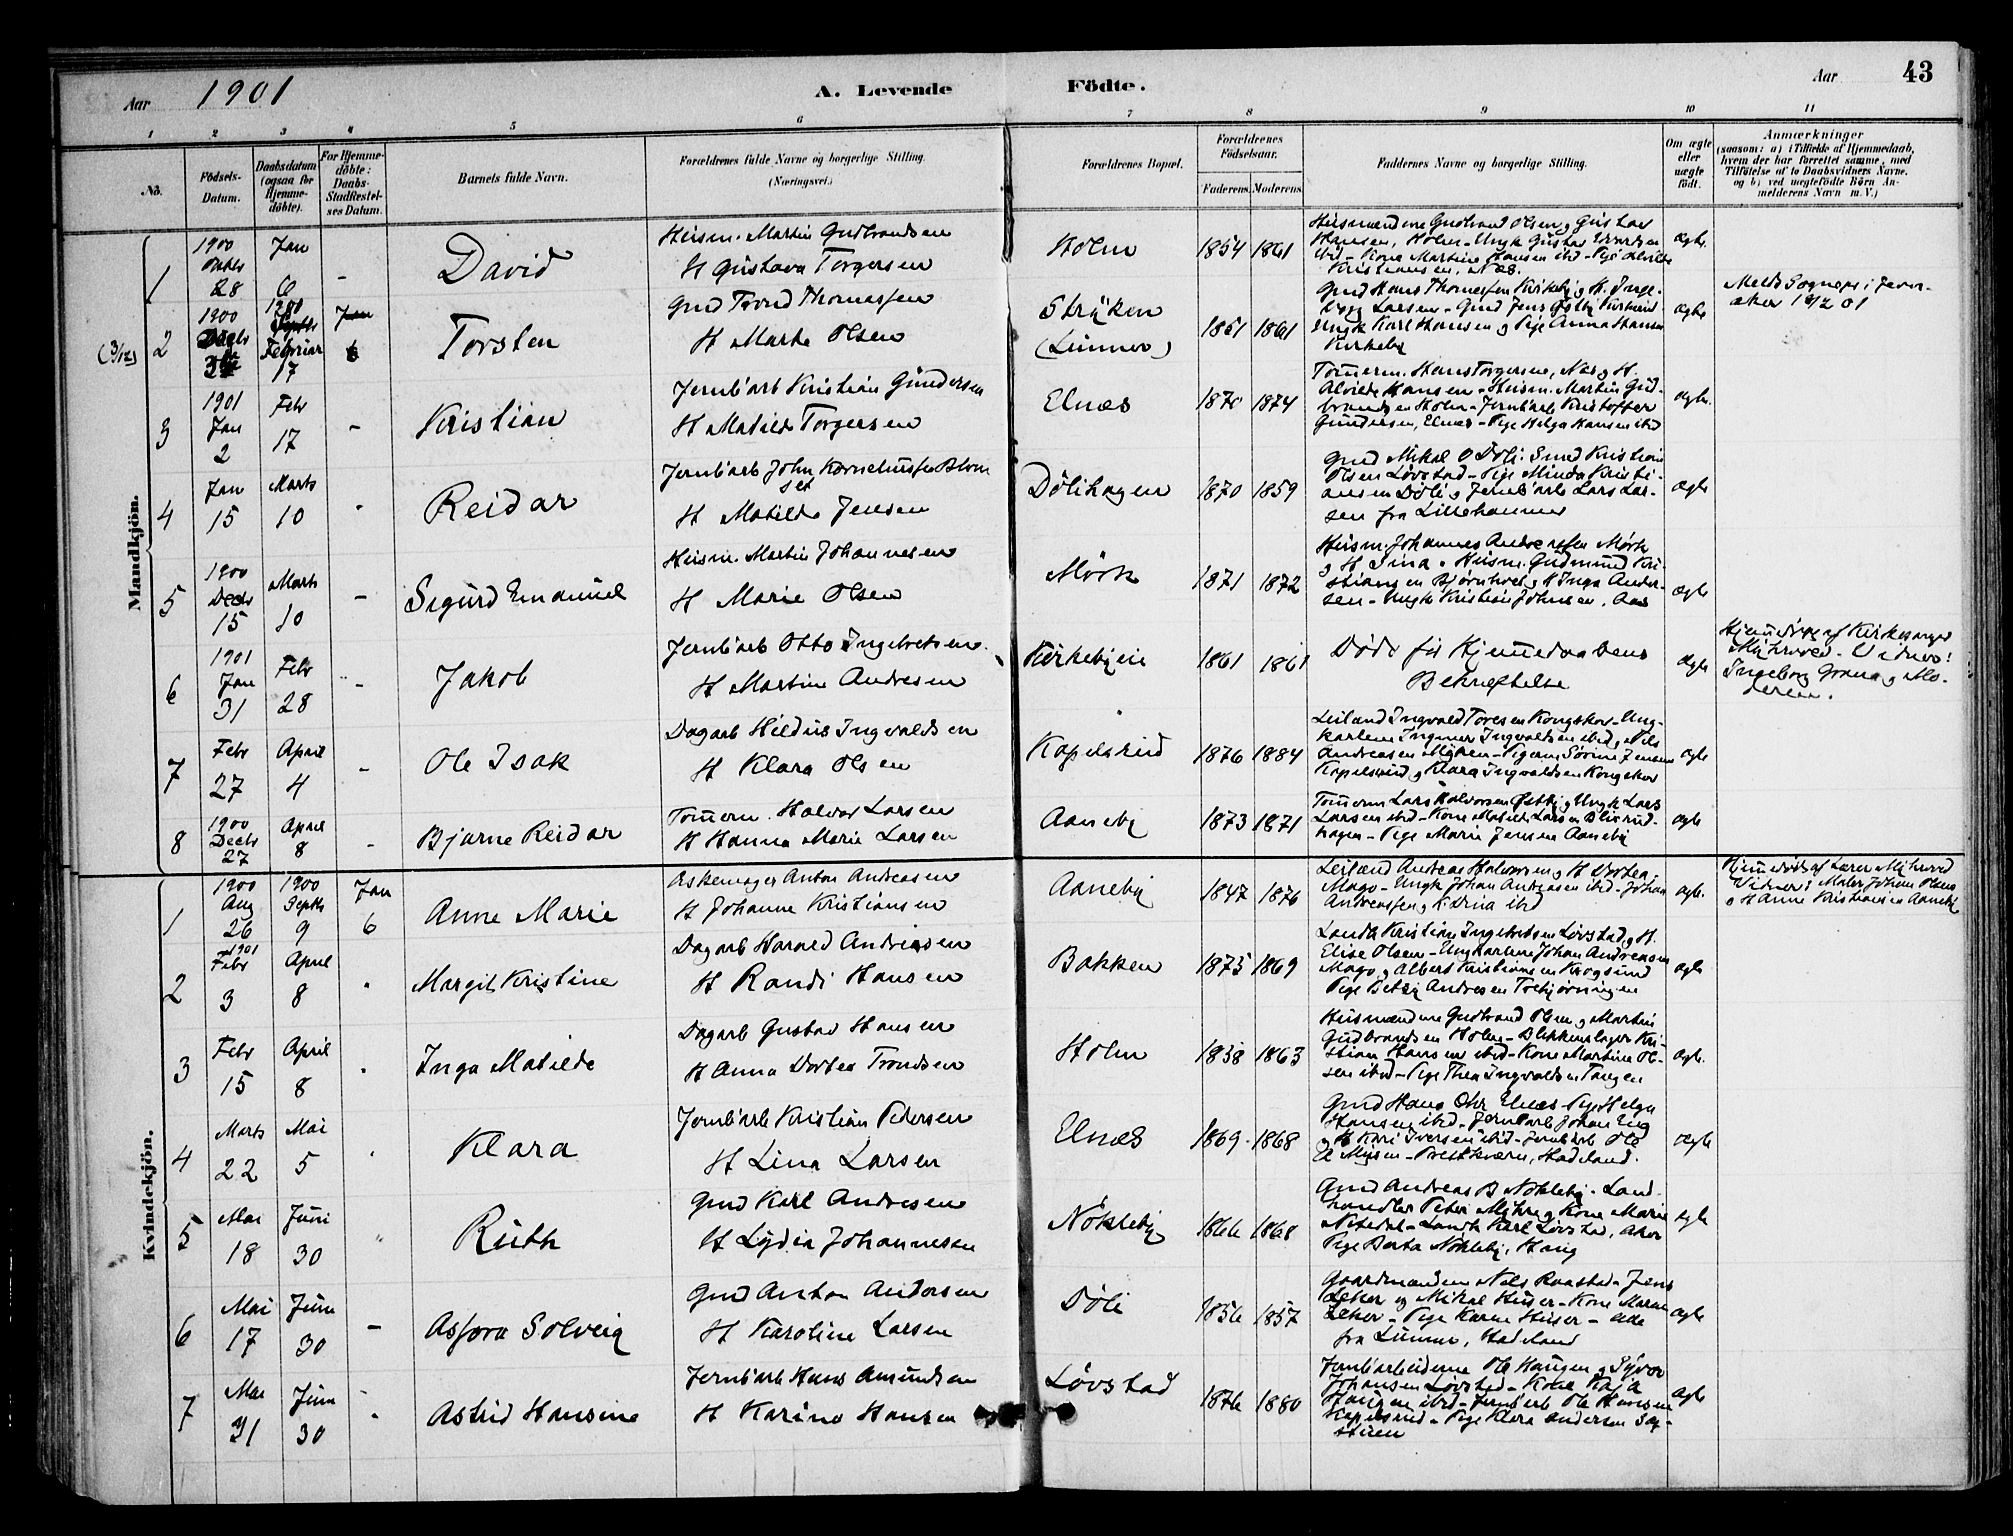 43
Aar 1901
A. Levende Födte.
Aar
1 2 3 4 5 6 7 8 9 10 11
No.
Födsels-Datum.
Daabsdatum (ogsaa for Hjemme-döbte).
For Hjemme-döbte: Daabs-Stadfæstel-ses Datum.
Barnets fulde Navn.
Forældrenes fulde Navne og borgerlige Stilling. (Næringsvei.)
Forældrenes Bopæl.
Forældrenes Födselsaar.
Faderens. Moderens.
Faddernes Navne og borgerlige Stilling.
Om ægte eller uægte födt.
Anmærkninger
(saasom: a) i Tilfælde af Hjemmedaab, hvem der har forrettet samme, med Tilföielse af to Daabsvidners Navne, og b) ved uægtefödte Börn An-melderens Navn m. V.)
Mandkjön.
1 1900 Octbr 28 Jan 6 - David
Husm. Martin Gudbrandsen
H Gustava Torgersen
Holm 1854 1861
Husmændene Gudbrand Olsen, Gustav
Hansen, Holm - Ungk Gustav
ibid - Kone Martine Hansen ibid - Pige Alvilde
Kristiansen, Næs.
ægte.
(3/12) 2 1900 Februar 17 Torsten
Gmd Trond Thomassen
H Marte Olsen
Stryken
(Lunner)
1851 1861
Gmd Hans Thomassen Kirkeby, K. Inge-
borg Larsen - Gmd Jens Østby
Ungk Karl Hansen og Pige Anna Hansen
Kirkeby
ægte
Meldt Sognepr i Jevn-
aker 18/2 01
3 1901 Jan 2 Febr 17 - Kristian
Jernb'arb Kristian Gundersen
H Matilde Torgersen
Elnæs 1870 1874
Tømerm. Hans Torgersen, Næs, H.
Alvilde Hansen - Husm. Martin Gud-
brandsen Holm - Jernb'arb Kristoffer
Gundersen, Elnæs - Pige Helga Hansen ibid
ægte.
4 Jan 15 Marts 10 - Reidar
Jernb'arb John Korneliussen Blom
set
H Matilde Jensen
Dölihagen 1870 1859
Gmd Mikal O Döli Smed Kristian
Olsen Løvstad - Pige Minda Kristi-
ansen Döli, Jernb'arb Lars Lar-
sen fra Lillehammer
ægte
5 1900 Decbr 15 Marts 10 - Sigurd Emanuel
Husm. Martin Johannesen
H Marie Olsen
Mörk 1871 1872
Husm. Johannes Andreassen Mörk
og H Lina - Husm. Gudmund Kri-
stiansen Bjørntvet, H Inga Ander-
sen - Ungk Kristian Johnsen, Aas
ægte
6 1901 Jan 31 Febr 28 - Jakob
Jernb'arb Otto Ingebretsen
H Martine Andresen
Kirkebyeie 1861 1861
Døde før Hjemmedaabens
Bekræftelse
ægte
Hjemmedøbt af Kirkesanger
Myhrvold - Vidner:
Ingeborg Grana, Mo-
deren.
7 Febr 27 April 4 - Ole Isak
Dagarb Hildus Ingvaldsen
H Klara Olsen
Kapelsrud 1876 1884
Leilænd Ingvald Toresen Kongskov - Ung-
karlene Ingmar Ingvaldsen ibid, Nils
Andreasen Myhren - Pigerne Sørine Jensen
Kapelsrud, Klara Ingvaldsen Kongskov
ægte
8 1900 Decbr 27 April 8 - Bjarne Reidar
Tømerm. Halvor Larsen
H Hanna Marie Larsen
Aaneby 1873 1871
Tømerm Lars Halvorsen Østby, Ungk Lars
Larsen ibid - Kone Matilde Larsen
hagen - Pige Marie Jensen Aaneby
ægte
Kvindekjön.
1 1900 Aug 26 1900 Septbr 9 Jan 6 Anne Marie
Askemager Anton Andreasen
H Johanne Kristiansen
Aaneby 1847 1876
Leilænd Andreas Halvorsen, H Dortea,
Mago - Ungk Johan Andreasen ibid - Johan
Andreassen, K. Dina ibid
ægte.
Hjemmedøbt af Lærer Myhrvold
Vidner: Maler Johan Olsen
og H Anne Kristiansen Aaneby
2 1901 Febr 3 April 8 - Margit Kristine
Dagarb Harald Andreasen
H Randi Hansen
Bakken 1875 1869
Landh Kristian Ingebretsen Løvstad, H.
Elise Olsen - Ungkarlene Johan Andreasen
Mago, Albert Kristiansen Krogsund
Pige Betsy Andresen
ægte
3 Febr 15 April 8 - Inga Matilde
Dagarb Gustav Hansen
H Anna Dortea Trondsen
Holm 1858 1863
Husmændene Gudbrand Olsen, Martin
Gudbrandsen Holm - Blikkenslager Kri-
stian Hansen ibid - Kone Martine Ol-
sen ibid - Pige Thea Ingvaldsen Tangen
ægte.
4 Marts 22 Mai 5 - Klara
Jernb'arb Kristian Pedersen
H Lina Larsen
Elnæs 1869 1868
Gmd Hans Elnæs - Pige Helga
Hansen ibid - Jernb'arb Johan Eng
og H Kari Iversen ibid - Jernb'arb Ole
Hadeland.
ægte
5 Mai 18 Juni 30 - Ruth
Gmd Karl Andresen
H Lydia Johannesen
Nökleby 1866 1868
Gmd Andreas B Nökleby - Land-
handler Peter Myhre, Kone Marie
Nitedal - Landh Karl Løvstad, Aker
Pige Berta Nökleby, Haug
ægte
6 Mai 17 Juni 30 - Asfora Solveig
Gmd Anton Andersen
H Karoline Larsen
Döli 1856 1857
Gaardmændene Nils Raastad - Jens
Løker og Mikal Huser - Kone Maren
Løker - Pige Karen Huser - alle
fra Lunner, Hadeland
ægte
7 Mai 31 Juni 30 - Astrid Hansine
Jernb'arb Hans Amundsen
H Karine Hansen
Løvstad 1876 1880
Jernb'arbeiderne Ole Haugen, Syver
Johansen Løvstad - Kone Kaja
Haugen ibid - Jernb'arb Ole Hansen
Kapelsrud - Pige Klara Andersen Sag-
stuen
ægte